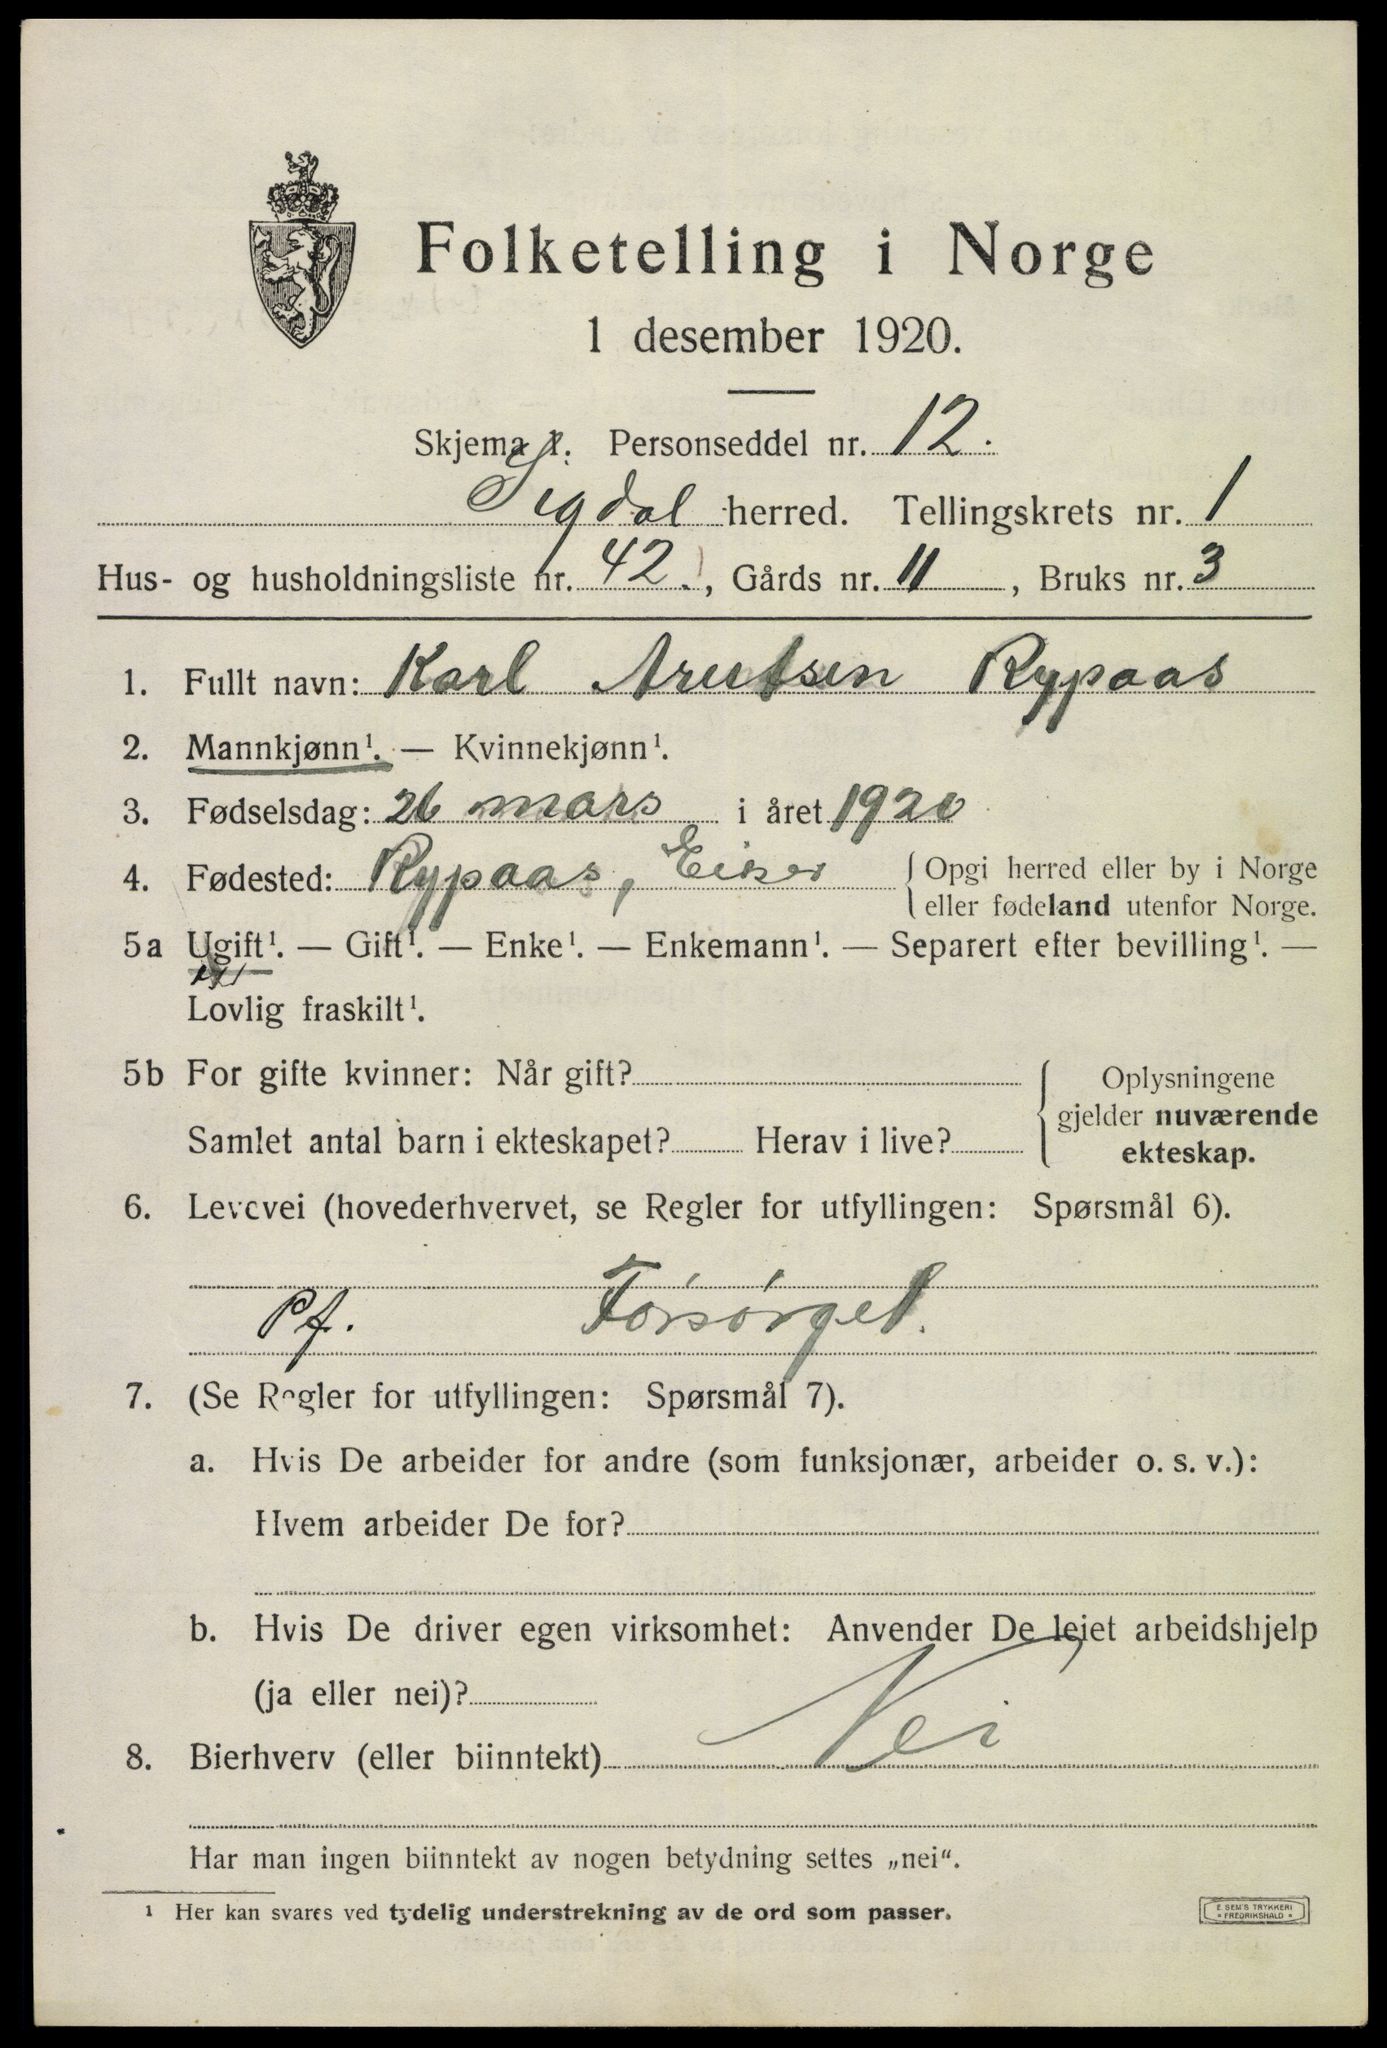 Folketelling i Norge
1 desember 1920.
Skjema 1. Personseddel nr. 12.
Sigdal herred. Tellingskrets nr. 1
Hus- og husholdningsliste nr. 42., Gårds nr. 11, Bruks nr. 3
1. Fullt navn: Karl Arutsen Rypaas
2. Mannkjønn¹. — Kvinnekjønn¹.
3. Fødselsdag: 26 mars i året 1920
4. Fødested: Rypaas, Eiker { Opgi herred eller by i Norge
eller fødeland utenfor Norge.
5a Ugift¹. — Gift¹. — Enke¹. — Enkemann¹. — Separert efter bevilling¹. —
Lovlig fraskilt¹.
5b For gifte kvinner: Når gift?
Samlet antal barn i ekteskapet? Herav i live?
{ Oplysningene
gjelder nuværende
ekteskap.
6. Levevei (hovederhvervet, se Regler for utfyllingen: Spørsmål 6).
Pf. Forsørget.
7. (Se Regler for utfyllingen: Spørsmål 7).
a. Hvis De arbeider for andre (som funksjonær, arbeider o. s. v.):
Hvem arbeider De for?
b. Hvis De driver egen virksomhet: Anvender De leiet arbeidshjelp
(ja eller nei)?
8. Bierhverv (eller biinntekt) Nei
Har man ingen biinntekt av nogen betydning settes „nei“.
¹ Her kan svares ved tydelig understrekning av de ord som passer.
E. SEM'S TRYKKERI
• FREDRIKSHALD •